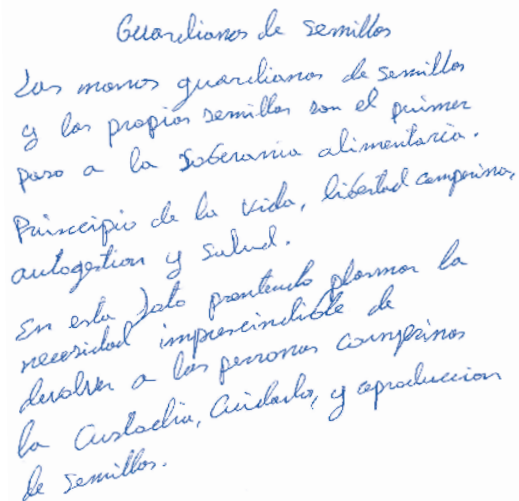 Guardianas de semillas
Las manos guardianas de semillas
y las propias semillas son el primer
paso a la Soberania alimentaria.
Principio de la vida, libertad campesina,
autogestion y salud.
En esta foto pretendo plasmar la
necesidad imprescindible de
devolver a las personas campesinas
la Custodia, Cuidado, y aproduccion
de semillas.